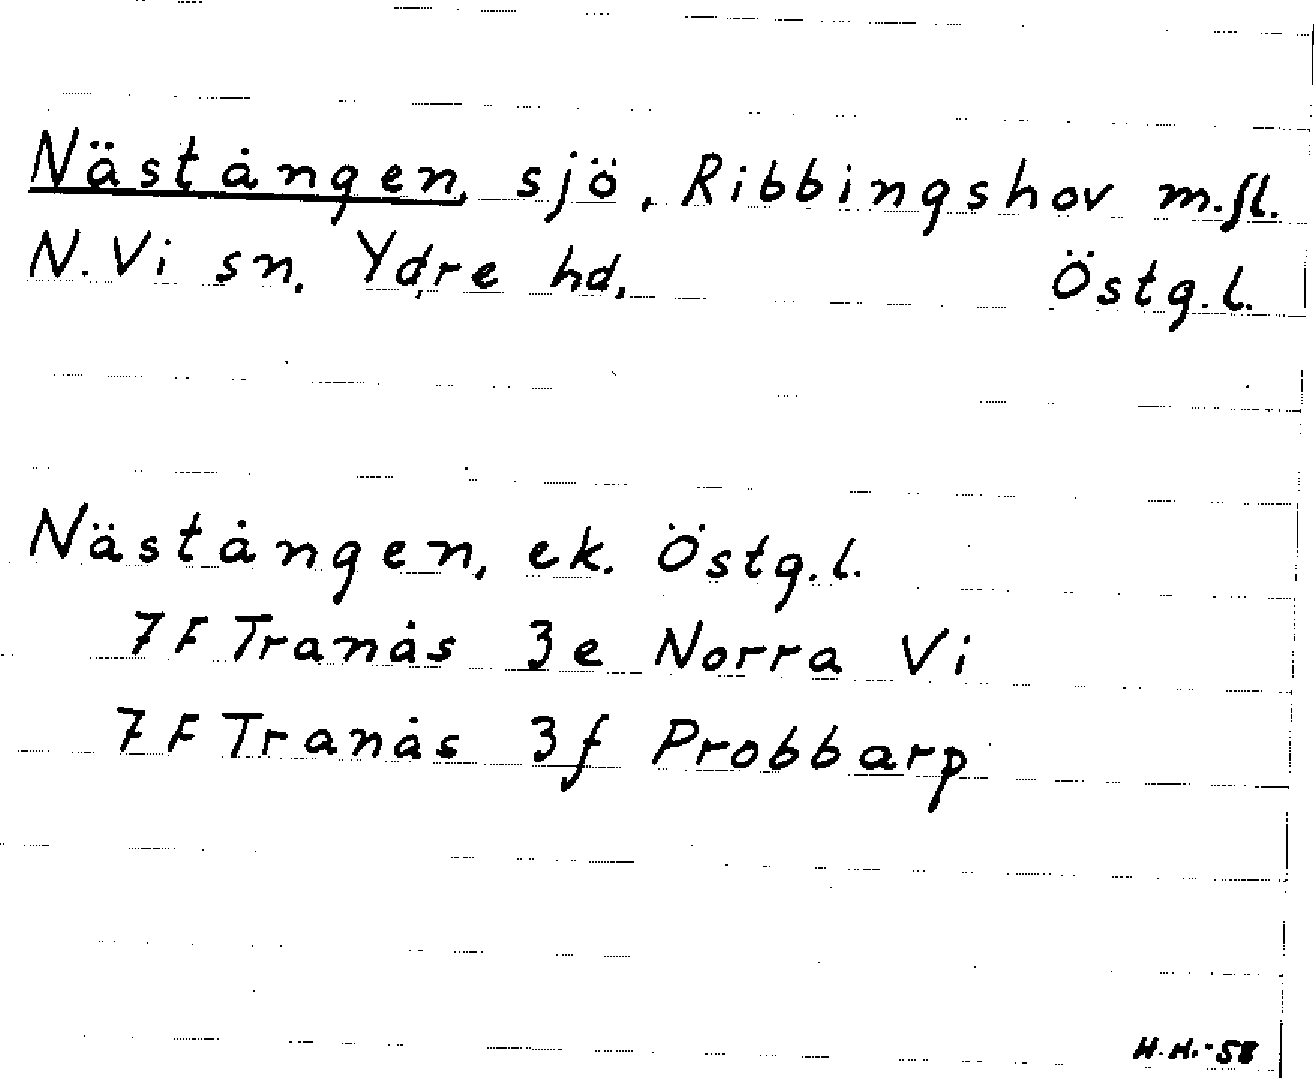 Nästången, sjö, Ribbingshov m.fl.
N. Vi sn. Ydre hd, Östg.l.
Nästången, ek. Östg.l.
7F Tranås 3e Norra Vi
7F Tranås 3f Probbarp
H.H.-58